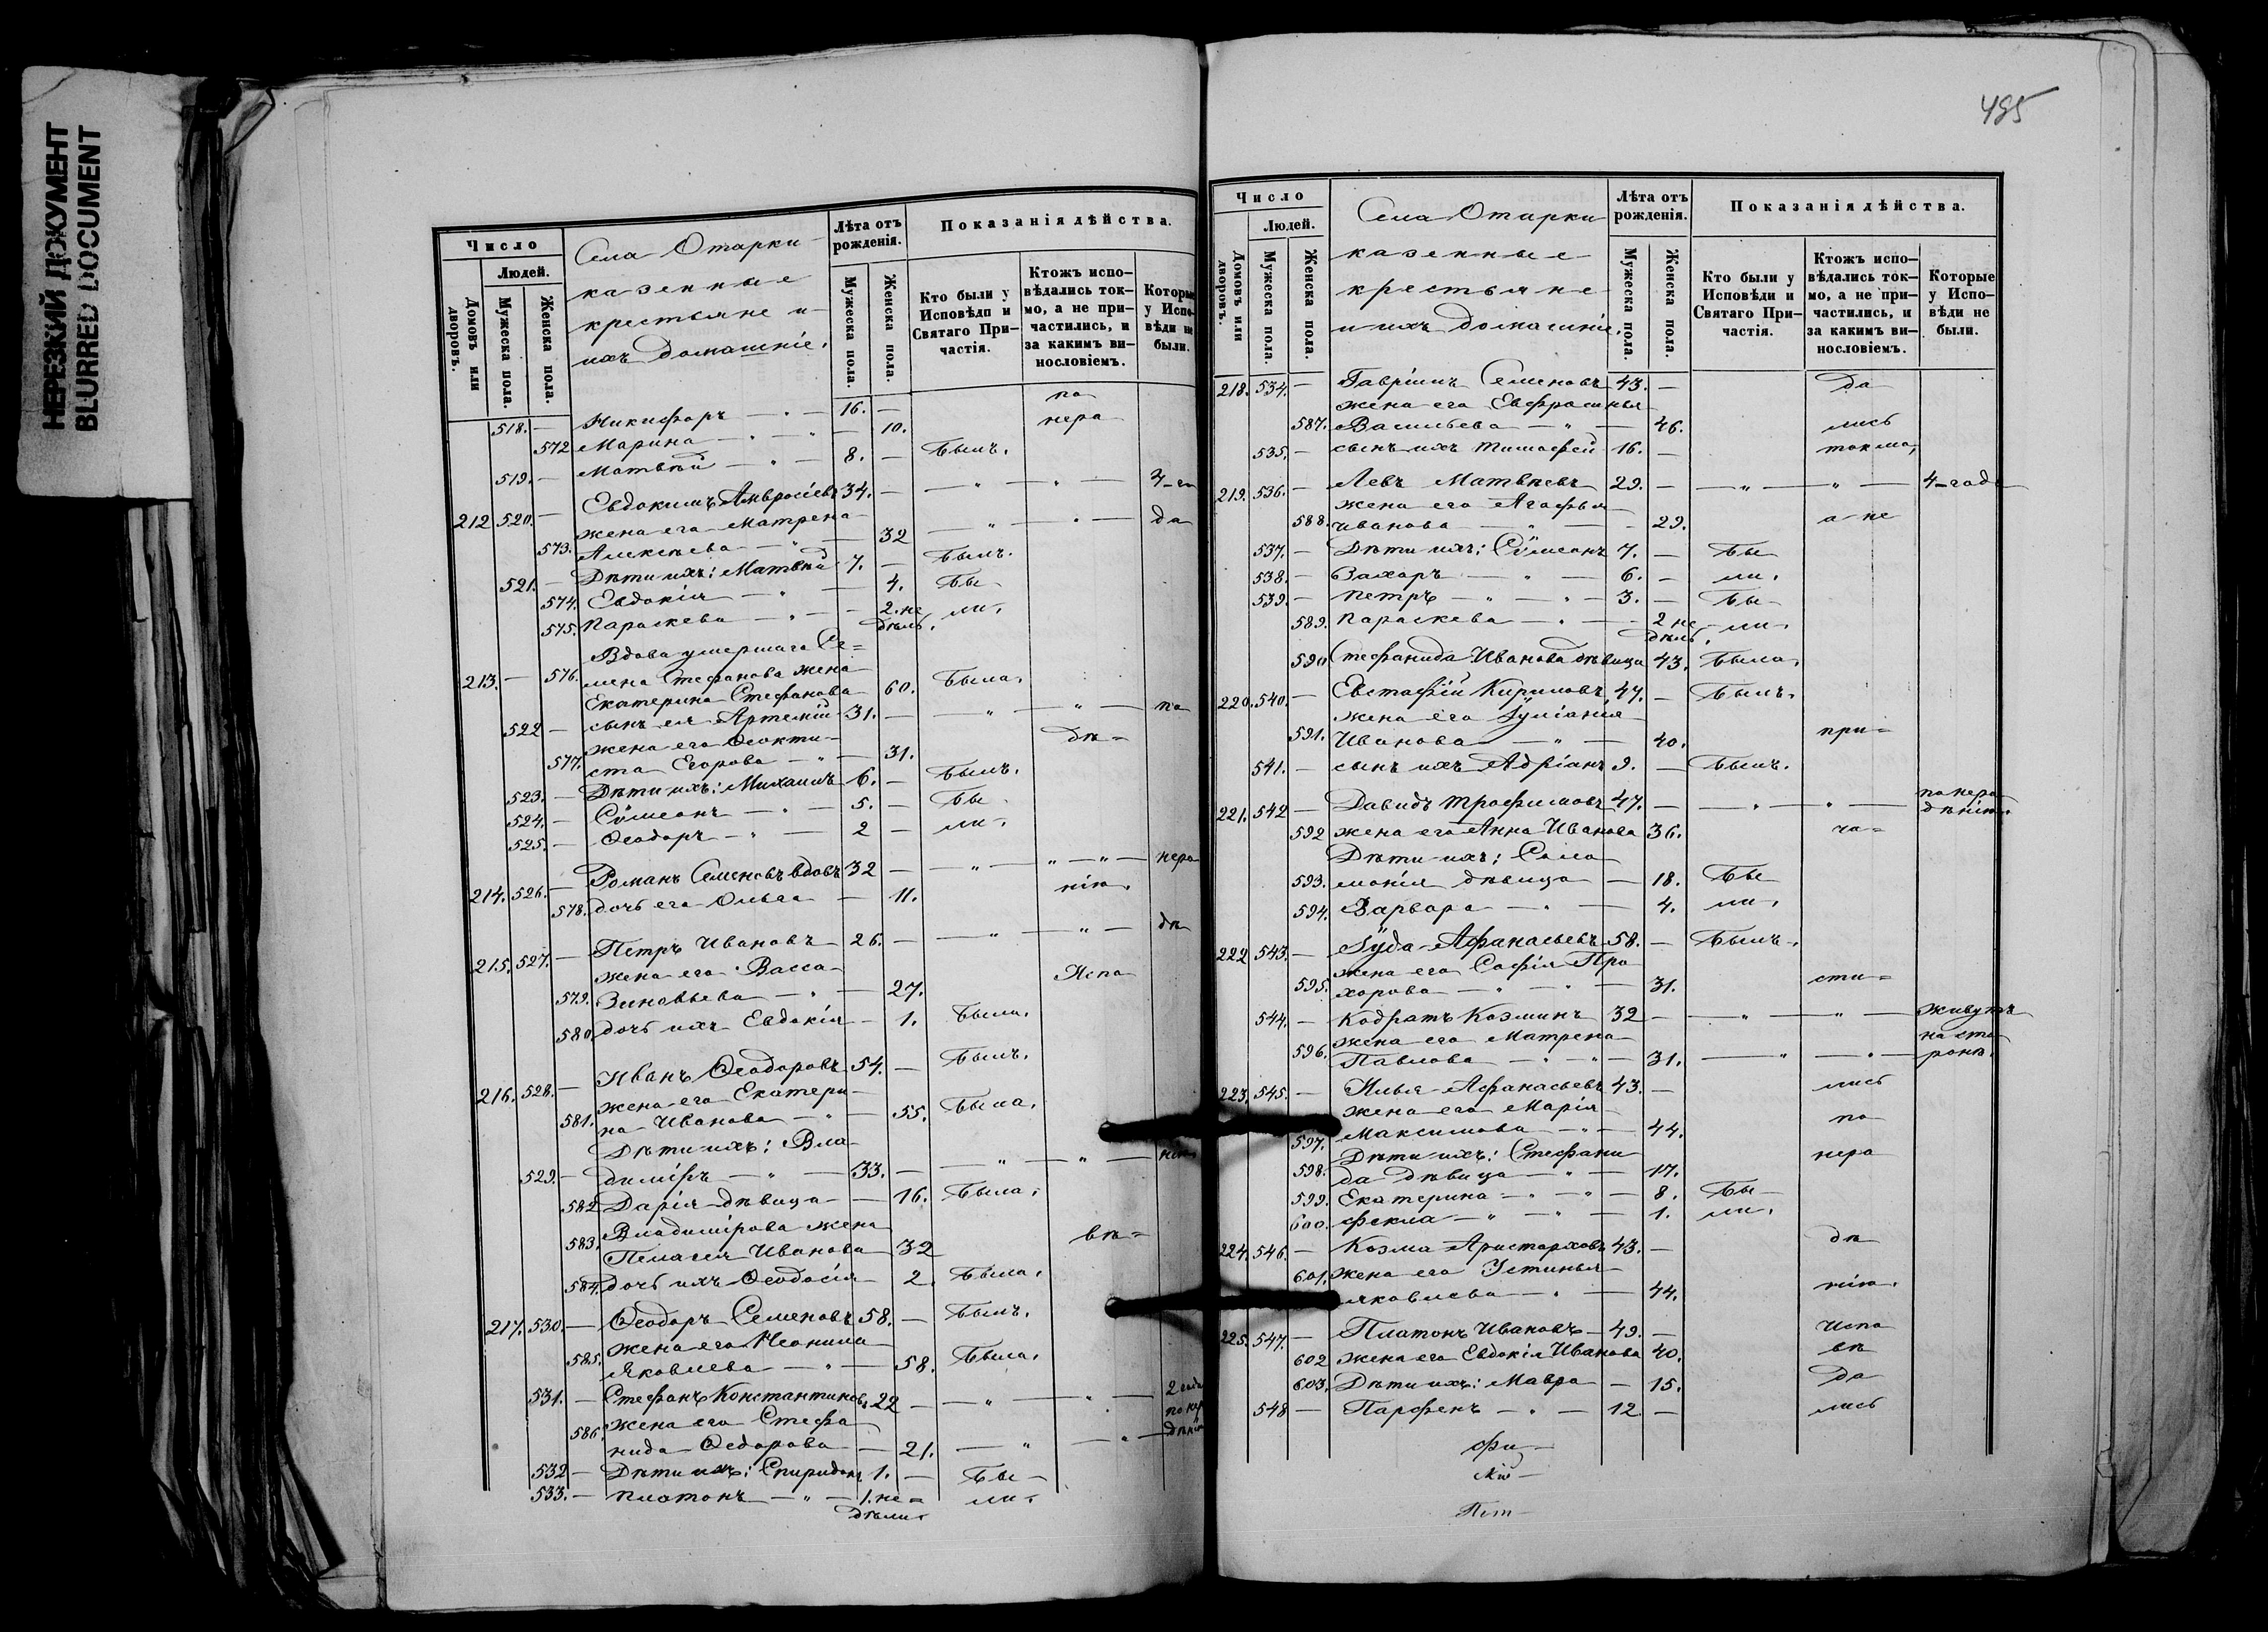 НЕРЕЗКИЙ ДОКУМЕНТ
BLURRED DOCUMENT
Число
Людей.
Домовъ или дворовъ.
Мужеска пола.
Женска пола.
Села Отарки
казенные
крестьяне и
ихъ домашніе.
Лѣта отъ рожденія.
Мужеска пола.
Женска пола.
Показанія дѣйства.
Кто были у Исповѣди и Святаго Причастія.
Ктожъ исповѣдались токмо, а не причастились, и за какимъ винословіемъ.
Которые у Исповѣди не были.
518. — Никифоръ — „ — 16. — по
572 Марина — „ — „ — 10. нера
519. — Матвѣй — „ — 8. — Былъ.
212 520. — Евдокимъ Амвросіевъ 34. — — „ — „ —
жена его Матрена
573. Алексѣева — „ — 32 — „ — „ — да
521. — Дѣти ихъ: Матвѣй 7. — Былъ.
574. Евдокія — „ — 4. Бы
575. Параскева — „ — — 2. не ли.
дѣль.
Вдова умершаго Се=
213. — 576. мена Стефанова жена
Екатерина Стефанова 60. Была.
522 — сынъ ея Артемій 31. — — „ — „ — по
жена его Ѳеокти-
577. ста Егорова — „ — 31. дѣ=
523. — Дѣти ихъ: Михаилъ 6. — Былъ.
524. — Сѵмеонъ — „ — 5. — Бы
525. — Ѳеодоръ — „ — 2 — ли.
214. 526. — Романъ Семеновъ вдовъ 32 — — „ — „ — „ — нера
578. дочь его Ольга — 11. нію.
215. 527. — Петръ Ивановъ 26. — — „ — „ — дѣ
жена его Васса
579. Зиновьева — „ — 27. Испо
580 дочь ихъ Евдокія — 1. Была.
216. 528. — Иванъ Ѳеодоровъ 54. — Былъ.
жена его Екатери-
581. на Иванова — „ — 55. Была.
Дѣти ихъ: Вла-
529. — диміръ — „ — 33. — — „ — „ — нію
582 Дарія дѣвица — 16. Была.
583. Владимірова жена
Пелагея Иванова 32 вѣ=
584. дочь ихъ Ѳеодосія — 2. Была.
217. 530. — Ѳеодоръ Семеновъ 58. — Былъ.
585. жена его Неонила
Яковлева — „ — 58. Была.
531. — Стефанъ Константиновъ 22 — — „ — „ — 2 года
586. жена его Стефа по нер
нида Ѳедорова — 21. — „ — „ — дѣнію
532 — Дѣти ихъ: Спиридонъ 1. — Бы —
533. — Платонъ — „ — 1. не= ли.
дѣли.
495
Число
Людей.
Домовъ или дворовъ.
Мужеска пола.
Женска пола.
Села Отарки
казенные
крестьяне
и ихъ домашніе.
Лѣта отъ рожденія.
Мужеска пола.
Женска пола.
Показанія дѣйства.
Кто были у Исповѣди и Святаго Причастія.
Ктожъ исповѣдались токмо, а не причастились, и за какимъ винословіемъ.
Которые у Исповѣди не были.
218. 534. — Гавріилъ Семеновъ 43. — да
жена его Евфросинья
587. Васильева — „ — 46. лись
535. — сынъ ихъ Тимофей 16. — токмо,
219. 536. — Левъ Матвѣевъ 29. — — „ — „ — 4 года
жена его Агафья
588. Иванова — „ — — 29. а не
537. — Дѣти ихъ: Сѵмеонъ 7. — Бы
538. — Захаръ — „ — 6. — ли.
539. — Петръ — „ — „ — 3. — Бы
589. Параскева — „ — — 2 не ли.
дѣль.
590 Стефанида Иванова дѣвица 43. Была.
220. 540. — Евстафій Кириловъ 47. — Былъ.
жена его Іуліанія
591. Иванова — „ — 40. при=
541. — сынъ ихъ Адріанъ 9. — Былъ.
221. 542 — Давидъ Трофимовъ 47. — — „ — „ — по нера
дѣнію.
592 жена его Анна Иванова 36. ча=
Дѣти ихъ: Соло
593. монія дѣвица — 18. Бы
594. Варвара — „ — 4. ли.
222 543. — Іуда Афанасьевъ 58. — Былъ.
жена его Софія Про
595. хорова — „ — „ — 31. сти=
544. — Кодратъ Козминъ 32 — — „ — „ — живутъ
596. жена его Матрена на сто
Павлова — „ — „ — 31. — „ — „ — ронѣ.
223. 545. — Илья Афанасьевъ 43. — лись
жена его Марія
597. Максимова — „ — 44. по
Дѣти ихъ: Стефани
598. да дѣвица — „ — 17. нера
599. Екатерина — „ — „ — 8. Бы —
600. Фекла — „ — „ — 1. ли.
224. 546. — Козма Аристарховъ 43. — дѣ
601. жена его Устинья
Яковлева — „ — 44. нію.
225. 547. — Платонъ Ивановъ 49. — Испо
602 жена его Евдокія Иванова 40. вѣ
603. Дѣти ихъ: Мавра — 15. да
548 — Парфенъ — „ — 12 — лись